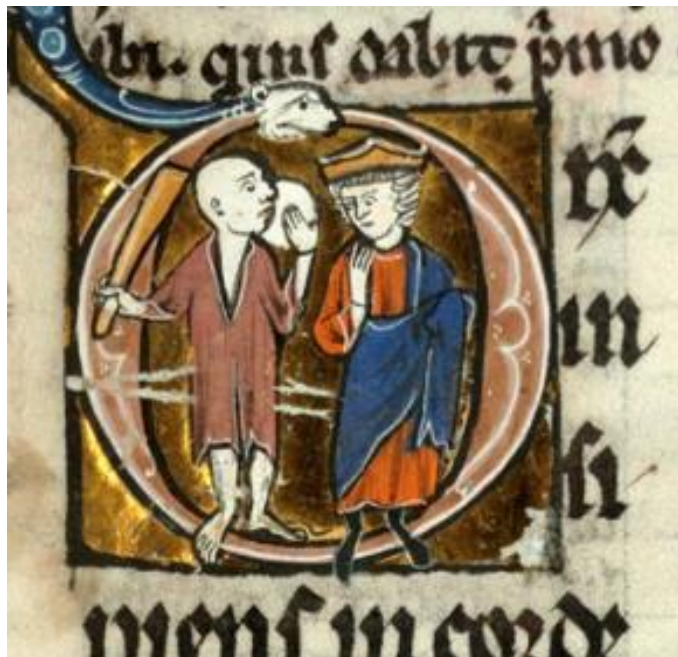 ibi. quis dabit p̄mo
ix̃
in
si
piens in corde